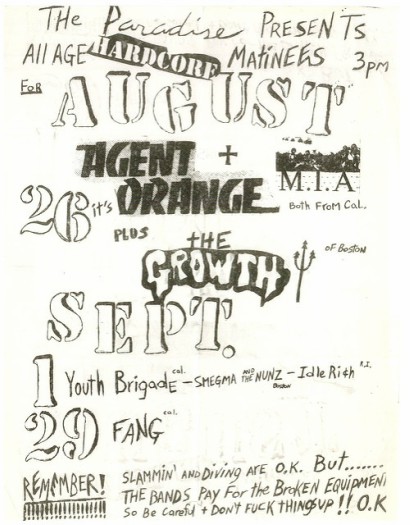 THE Paradise PRESENTS
All AGE HARDCORE MATiNEES 3pm
FOR
AUGUST
AGENT + M.I.A
26 it's ORANGE Both From Cal.
PLUS
tHE
GROWTH OF BOSTON
SEPT.
1 Youth Brigade cal. - SMEGMA AND THE NUNZ BOSTON - Idle Rich R.I.
29 FANG cal.
REMEMBER! SLAMMIN' AND DiViNG ARE O.K. BuT.......
THE BANDS PAY For the BroKEN EQUiPMENT
So Be CareFul + DON'T FUCK THINGS UP!! O.K